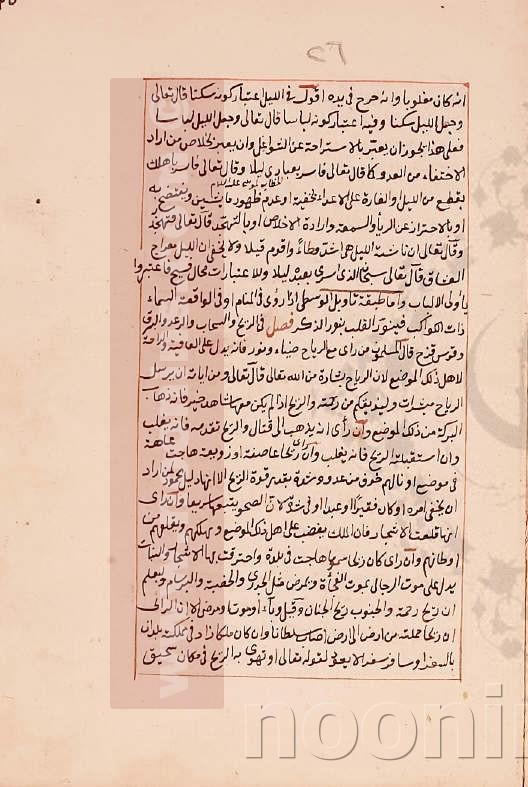 ٢٦
انه كان مغلوبا وانه حرج فى يده اقول فى الليل اعتبار كونه سكنا قال تعالى
وجعل الليل سكنا وفيه اعتبار كونه لباسا قال تعالى وجعل الليل لباسا
فعلى هذا يجوز ان يعتبر بالاستراحة عن الشواغل وان يعتبر بالخلاص من اراد
الاختفاء من العدو كما قال تعالى فاسر بعبادى ليلا وقال تعالى فاسر باهلك
بقطع من الليل والغارة على الاعداء بخفية وعدم ظهور ما
او بالاحتراز عن الريا والسمعة وارادة الاخلاص او بالتهجد قال تعالى فتهجد به
وقال تعالى ان ناشئة الليل هى اشد وطاء واقوم قيلا ولا يخفى ان الليل معراج
العشاق قال تعالى سبحان الذى اسرى بعبده ليلا وللاعتبارات مجال فسيح فاعتبروا
يا اولى الالباب واما طبقة تاويل الوسطى اذا رؤى فى المنام او فى الواقعة السماء
ذات الكواكب فينور القلب بنور الذكر فصل فى الريح والسحاب والرعد والبرق
وقوس قزح قال المسلمون من راى مع الرياح ضياء ونور فانه يدل على العافية والراحة
لاهل ذلك الموضع لان الرياح بشارة من الله تعالى قال تعالى ومن اياته ان يرسل
الرياح مبشرات وليذيقكم من رحمته والريح اذا لم يكن معها شاهد خير فانه ذهاب
البركة من ذلك الموضع وان رأى انه يذهب الى قتال والريح تقدمه فانه يغلب
وان استقبلته الريح فانه يغلب وان راى ريحا عاصفة او زوبعة هاجت
فى موضع او نالهم خوف من عدو وشدة بقدر قوة الريح الا انها دليل لمن اراد
ان يخفى امره او كان فقيرا وعبدا او فى شدة لان الصحو يتبعها سريعا وان راى
انها قلعت الاشجار فان الملك يغضب على اهل ذلك الموضع ويهلكهم ويقلعهم من
اوطانهم وان راى كان ريحا سموما هاجت فى بلدة واحترقت بها الاشجار والنبات
يدل على موت الرجال بموت الفجأة وبمرض مثل الجدرى والحصبة والبرسام وليعلم
ان ريح رحمة والجنوب ريح الجنان وقيل وباء او موتا ومرض الا ان راى
ان ريحا حملته من ارض الى ارض اصاب سلطانا وان كان ملكا زاد فى مملكته بلدان
بالسفر او سافر سفرا لا يعود لقوله تعالى او تهوى به الريح فى مكان سحيق
noonin